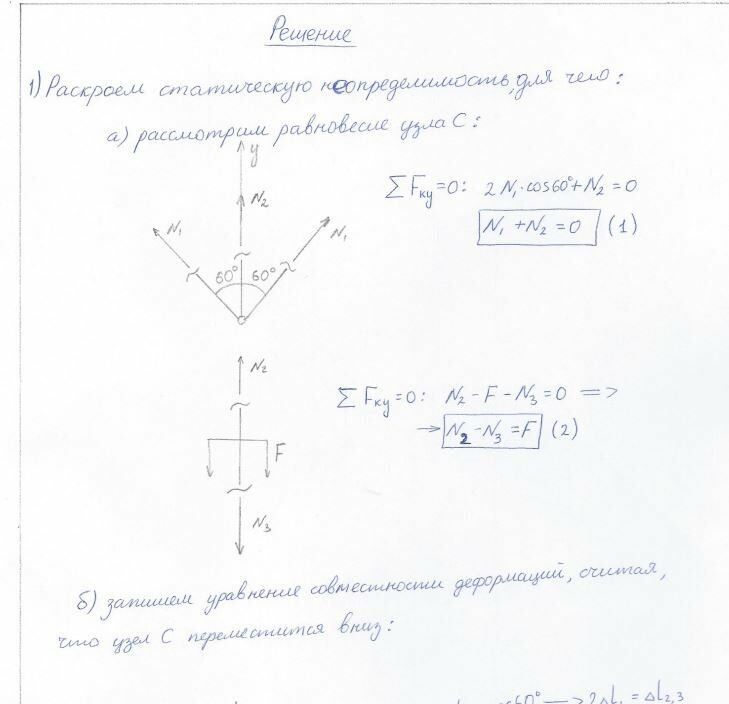 Решение
1) Раскроем статическую неопределимость, для чего:
а) рассмотрим равновесие узла С:
y
N₂
N₁
N₁
60° 60°
∑ Fкy = 0: 2 N₁·cos60° + N₂ = 0
N₁ + N₂ = 0 (1)
N₂
F
N₃
∑ Fкy = 0: N₂ - F - N₃ = 0 =>
→ N₂ - N₃ = F (2)
б) запишем уравнение совместности деформаций, считая,
что узел С переместится вниз:
cos60° —> 2ΔL₁ = ΔL₂,₃